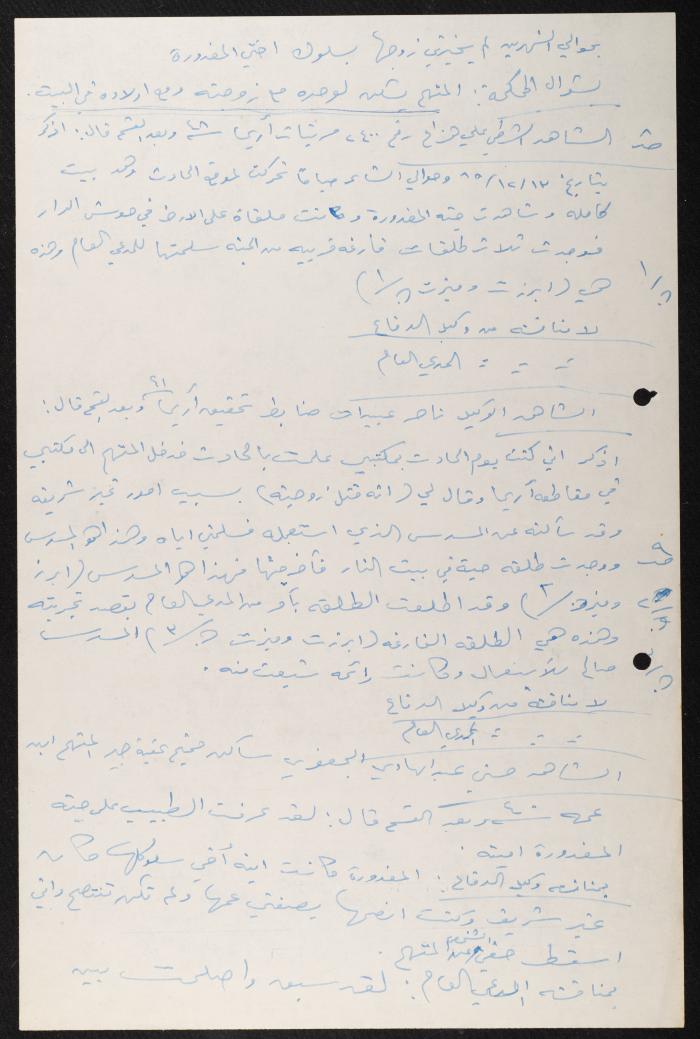 بحوالي الشهرين لم يخبرني زوجها بسلوك اختي المغدورة
بسؤال المحكمة: المتهم يسكن لوحده مع زوجته ومع اولاده في البيت.
الشاهد الشرطي علي هزاع رقم ٢٤٠٠ مرتبات أريحا وبعد القسم قال: اذكر
بتاريخ ٦٥/١٢/١٣ وحوالي الساعة صباحا تحركت لموقع الحادث وهو بيت
كامله وشاهدت جثة المغدورة وكانت ملقاة على الارض في حوش الدار
فوجدت ثلاث طلقات فارغه قريبه من الجثه سلمتها للمدعي العام وهذه
هي (ابرزت وميزت ن/١)
ن/١
لا مناقشه من وكيل الدفاع
= = = المدعي العام
الشاهد الوكيل ناصر عبيدات ضابط تحقيق أريحا وبعد القسم قال:
اذكر اني كنت يوم الحادث بمكتبي علمت بالحادث فدخل المتهم الى مكتبي
في مقاطعه أريحا وقال لي (انه قتل زوجته) بسبب امور غير شريفه
وقد سألته عن المسدس الذي استعمله فسلمني اياه وهذا هو المسدس
ووجدت طلقه حية في بيت النار فأخرجتها فهذا هو المسدس (ابرز
وميز ن/٢) وقد اطلقت الطلقه بأمر من المدعي العام بقصد تجربته
ن/٢
وهذه هي الطلقه الفارغه (ابرزت وميزت ن/٣) المسدس
ن/٣
صالح للاستعمال وكانت رائحه تنبعث منه.
لا مناقشة من وكيل الدفاع
= = = المدعي العام
الشاهد حسني عبد الهادي الجعفري ساكن مخيم عقبة جبر المتهم ابن
عمه وبعد القسم قال: لقد عرفت الطبيب على جثة
المغدورة امينه.
بمناقشه وكيل الدفاع: المغدورة كانت ابنه أخي سلوكها كان
غير شريف وكنت انصحها بصفتي عمها ولم تكن تنتصح واني
اسقط حقي الشخصي عن المتهم.
بمناقشه المدعي العام: لقد سبق واصلحت بين